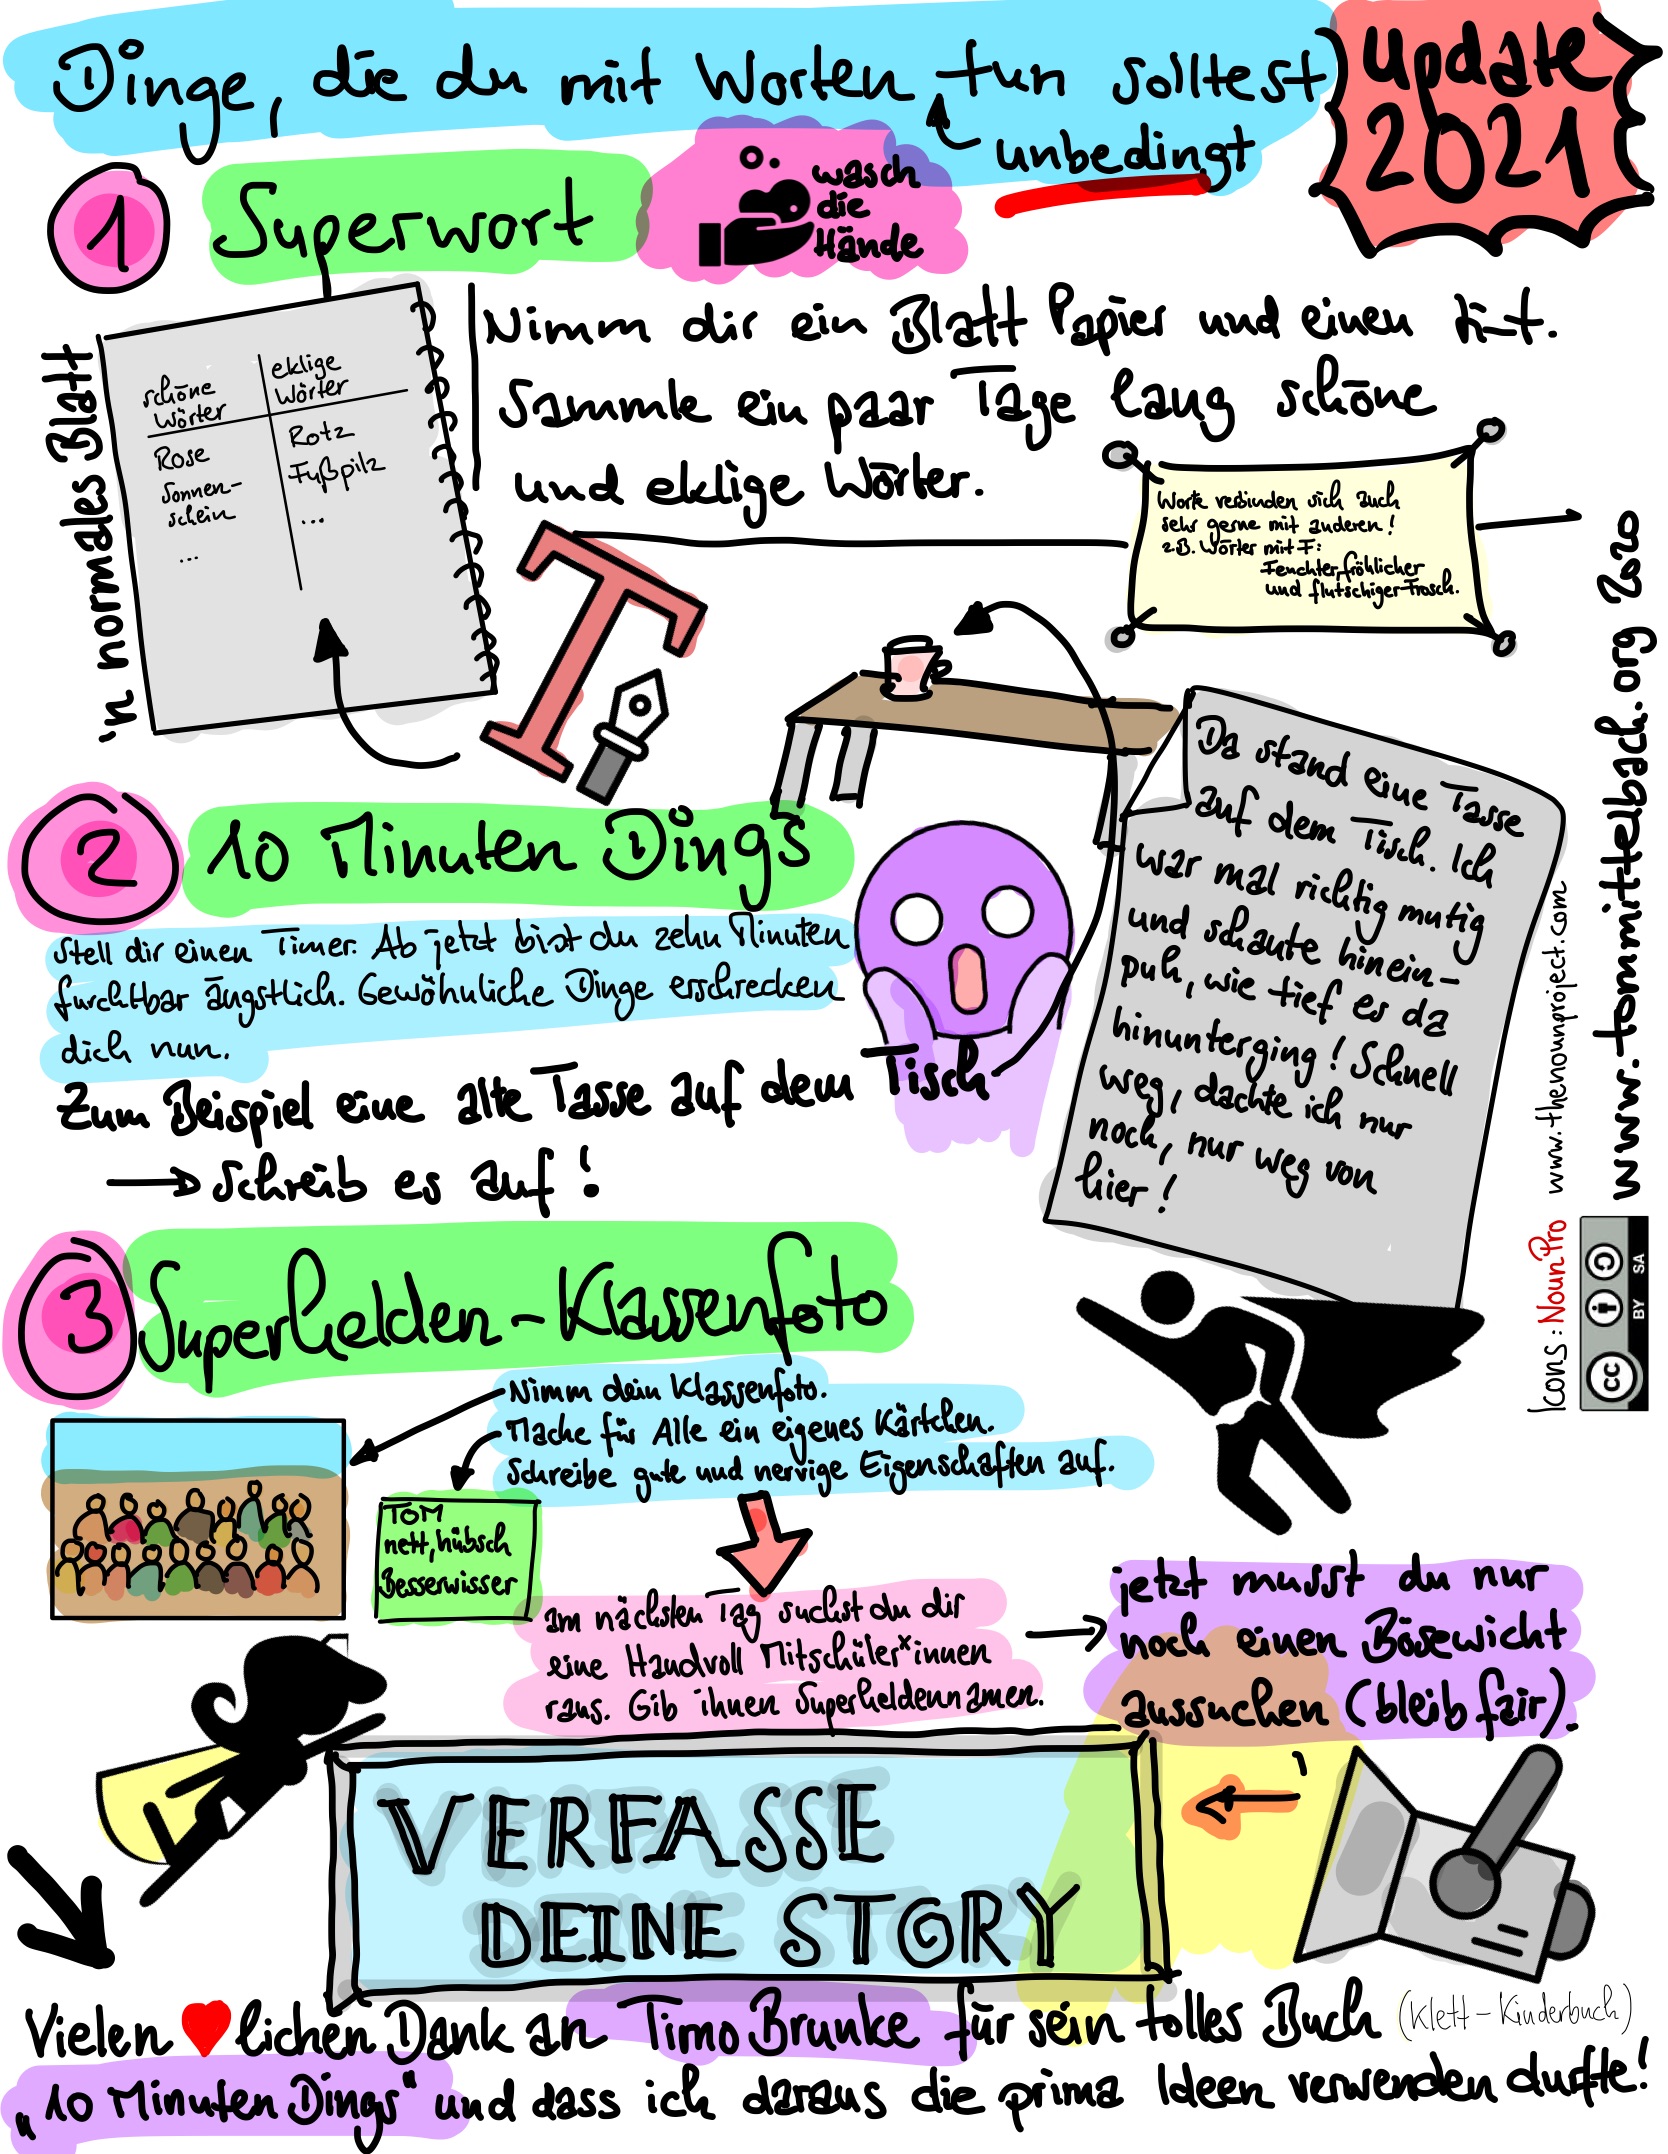 Dinge, die du mit Worten tun solltest
unbedingt
update
2021
1
Superwort
wasch
die
Hände
'n normales Blatt
schöne
Wörter
eklige
Wörter
Rose
Sonnen-
schein
...
Rotz
Fußpilz
...
Nimm dir ein Blatt Papier und einen
Sammle ein paar Tage lang schöne
und eklige Wörter.
Worte verbinden sich auch
sehr gerne mit anderen!
z.B. Wörter mit F:
Feuchter, fröhlicher
und flutschiger Frosch.
T
2
10 Minuten Dings
Stell dir einen Timer. Ab jetzt bist du zehn Minuten
furchtbar ängstlich. Gewöhnliche Dinge erschrecken
dich nun.
Zum Beispiel eine alte Tasse auf dem Tisch
Schreib es auf!
Da stand eine Tasse
auf dem Tisch. Ich
war mal richtig mutig
und schaute hinein-
puh, wie tief es da
hinunterging! Schnell
weg, dachte ich nur
noch, nur weg von
hier!
3
Superhelden-Klassenfoto
Nimm dein Klassenfoto.
Mache für Alle ein eigenes Kärtchen.
Schreibe gute und nervige Eigenschaften auf.
TOM
nett, hübsch
Besserwisser
am nächsten Tag suchst du dir
eine Handvoll Mitschüler*innen
raus. Gib ihnen Superheldennamen.
jetzt musst du nur
noch einen Bösewicht
aussuchen (bleib fair).
VERFASSE
DEINE STORY
Vielen ♥lichen Dank an Timo Brunke für sein tolles Buch (Klett-Kinderbuch)
„10 Minuten Dings" und dass ich daraus die prima Ideen verwenden durfte!
Icons: NounPro www.thenounproject.com
www.tommittelbach.org 2020
cc BY SA